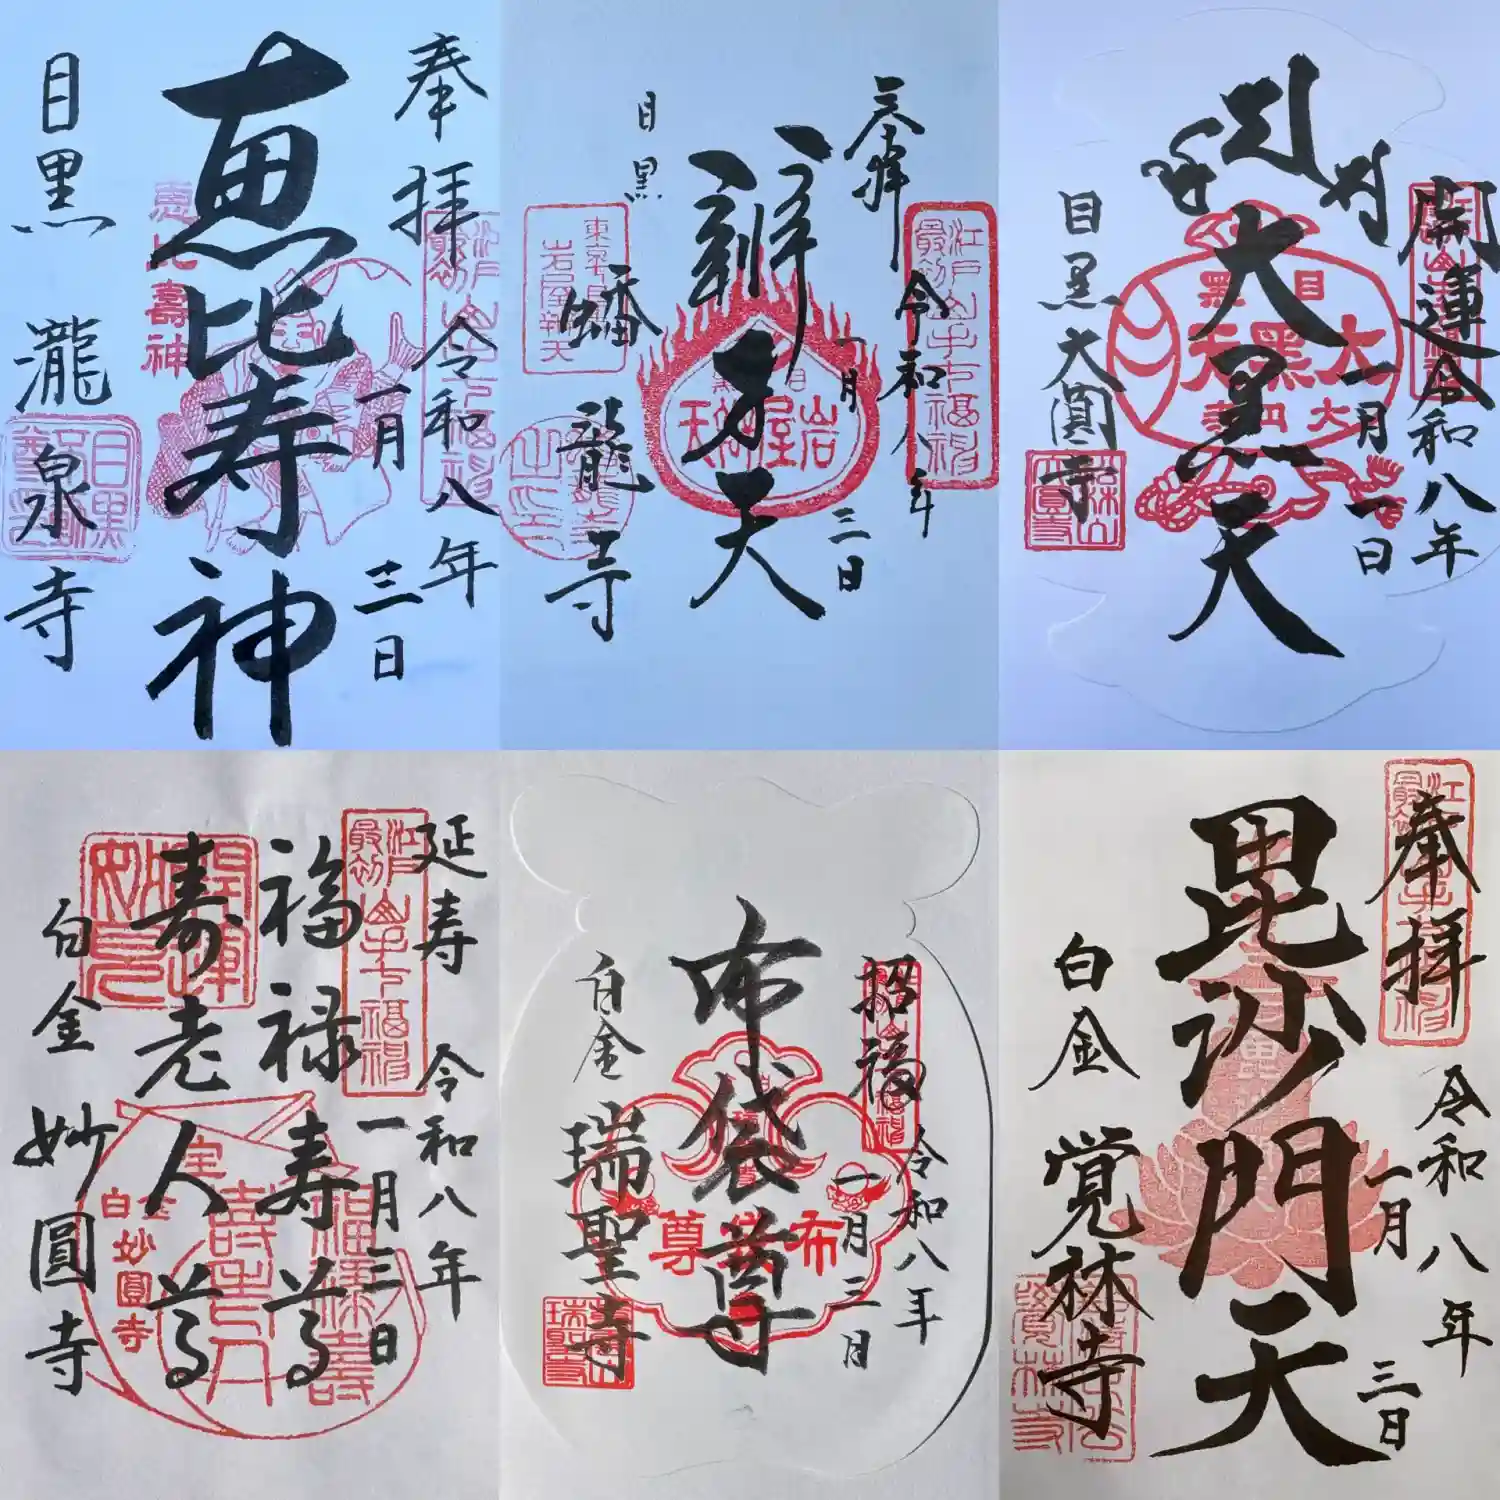 奉拝
令和八年
一月三日
恵比寿神
恵比壽神
江戸最初山手七福神
目黒
瀧泉寺
奉拝
令和八年
一月三日
辨才天
江戸最初山手七福神
岩屋辨天
目黒
蟠龍寺
開運
令和八年
一月一日
大黒天
目黒
大黒天
目黒大圓寺
延寿
令和八年
一月三日
江戸最初山手七福神
福禄寿尊
寿老人尊
福禄壽
壽老人
白金妙圓寺
白金
妙圓寺
招福
令和八年
一月三日
布袋尊
布袋尊
白金
瑞聖寺
瑞聖寺
奉拝
令和八年
一月三日
毘沙門天
白金
覚林寺